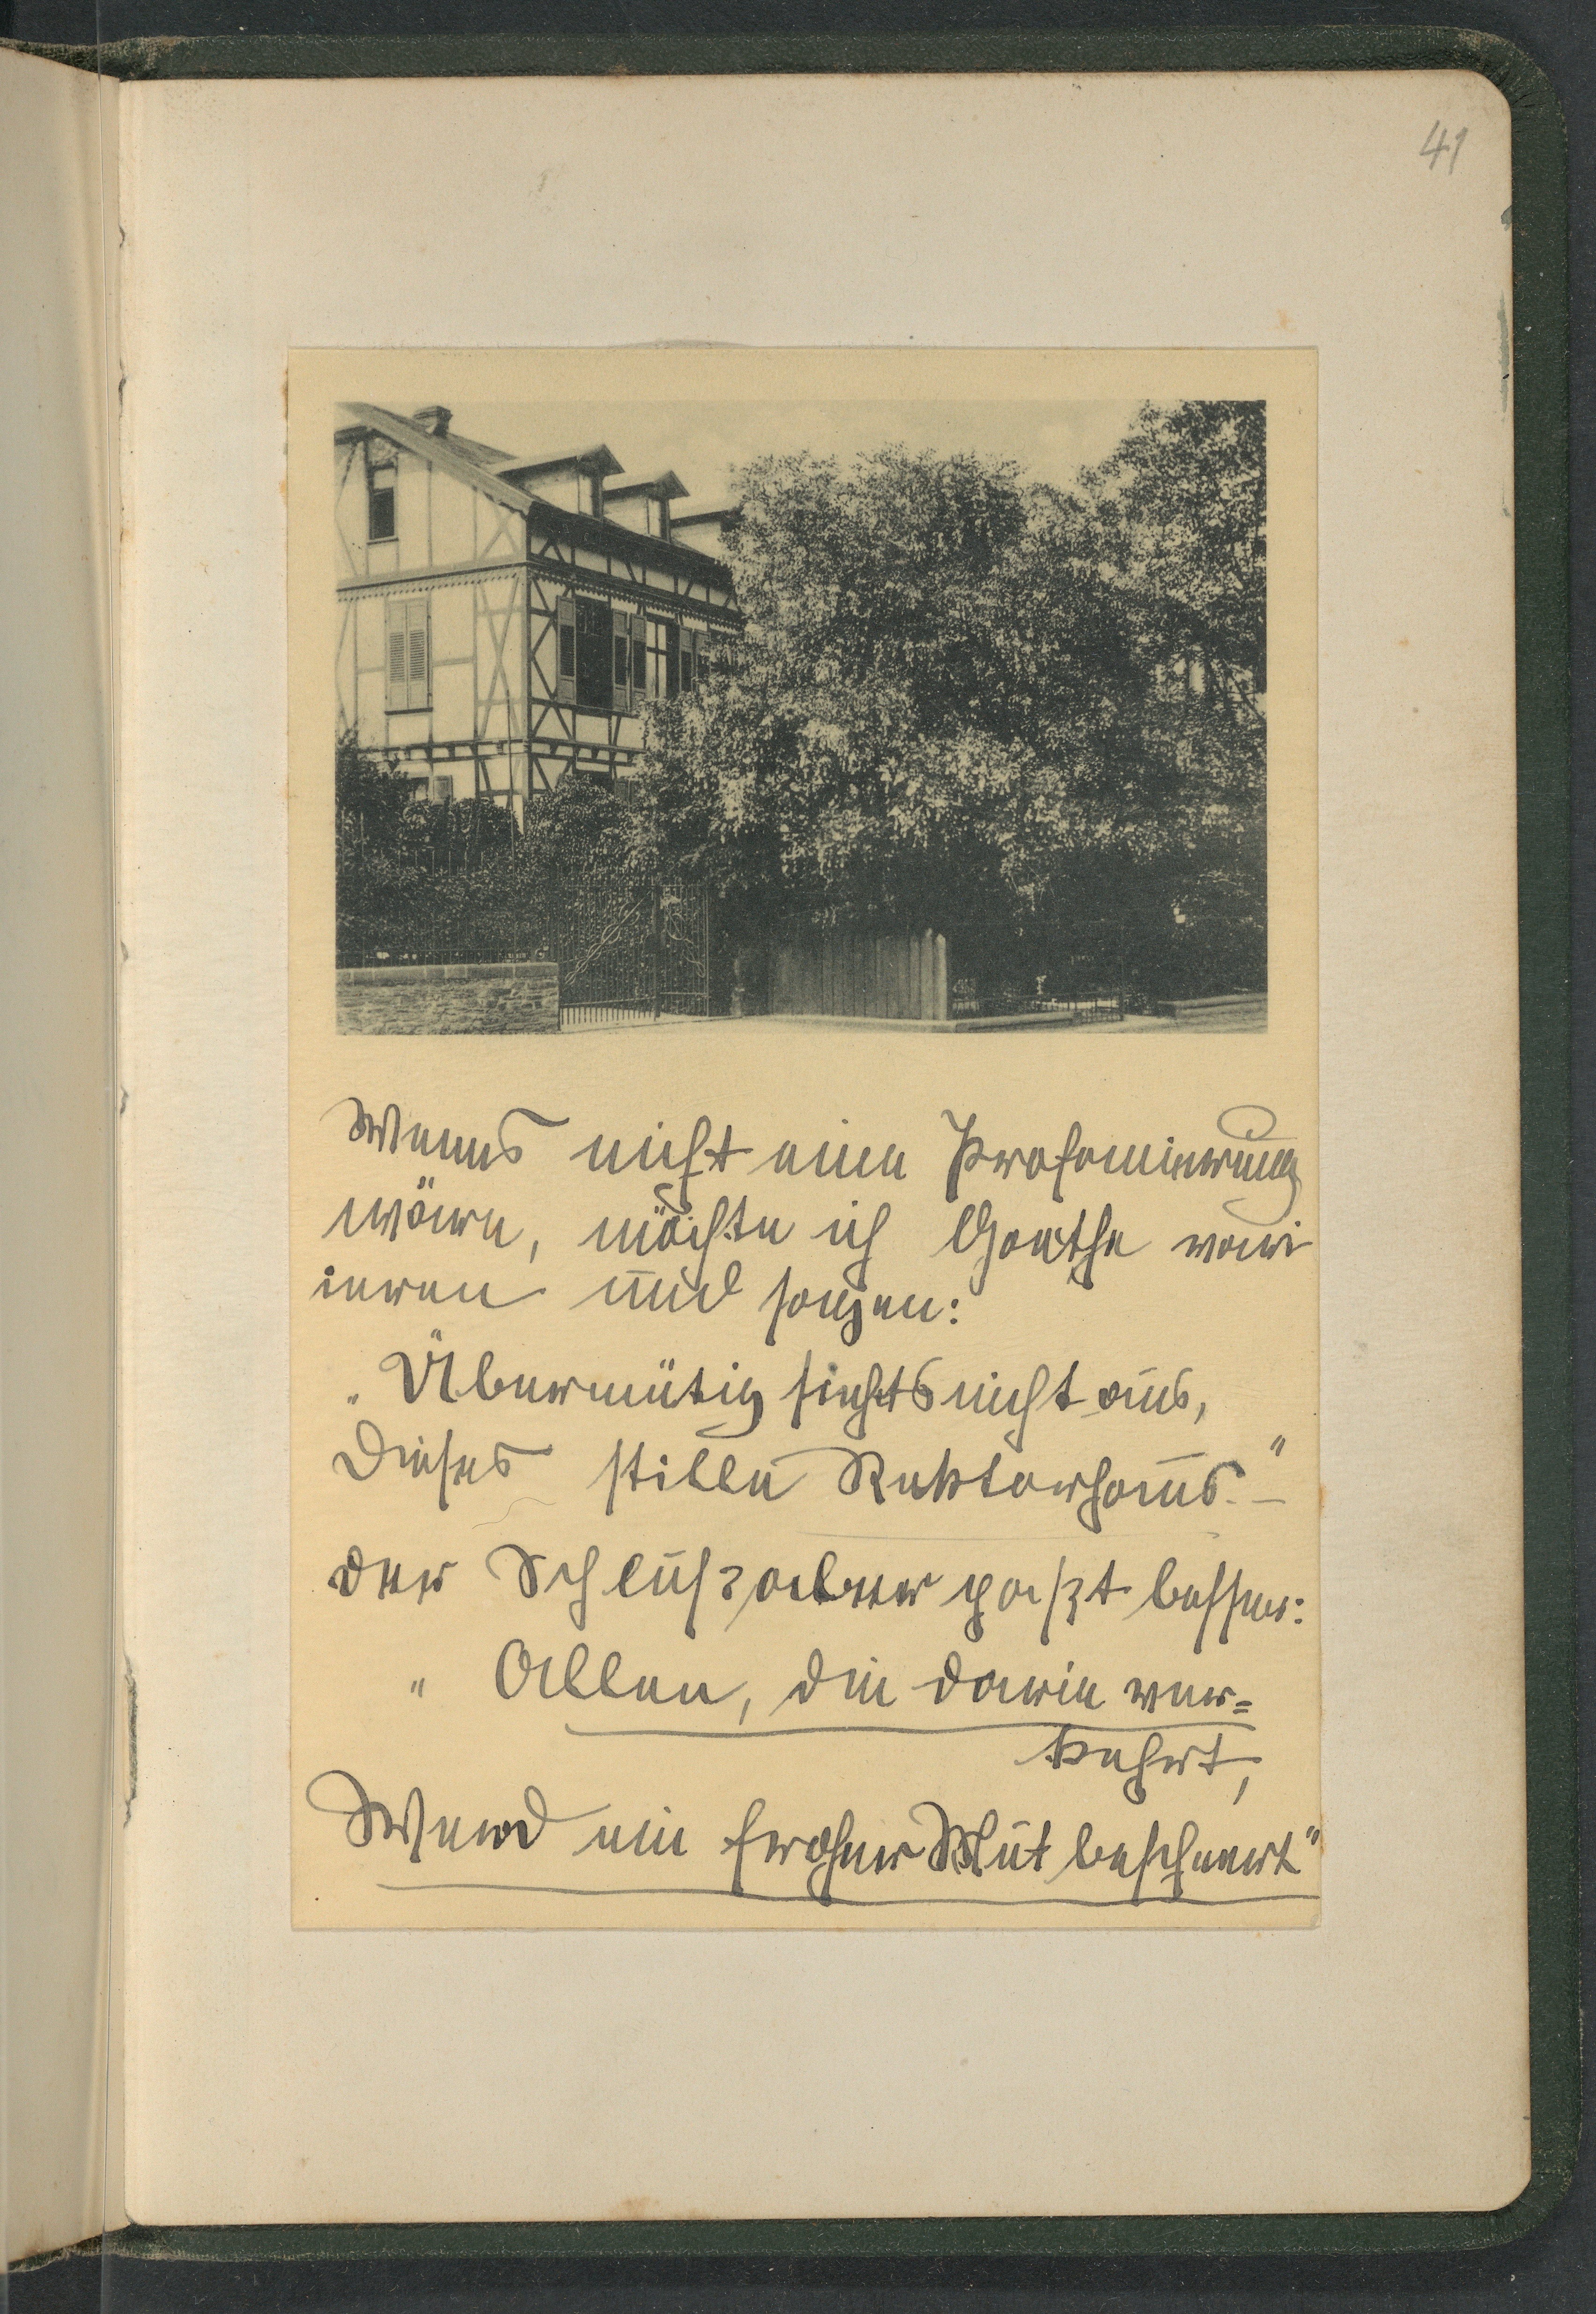 41
Wenns nicht eine Profanierung
wäre, möchte ich Goethe vari
ieren und sagen:
„Übermütig siehts nicht aus,
Dieses stille Rektorhaus." –
der Schluß aber paßt besser:
„Allen, die darin ver=
kehrt,
Werd ein froher Mut beschert"